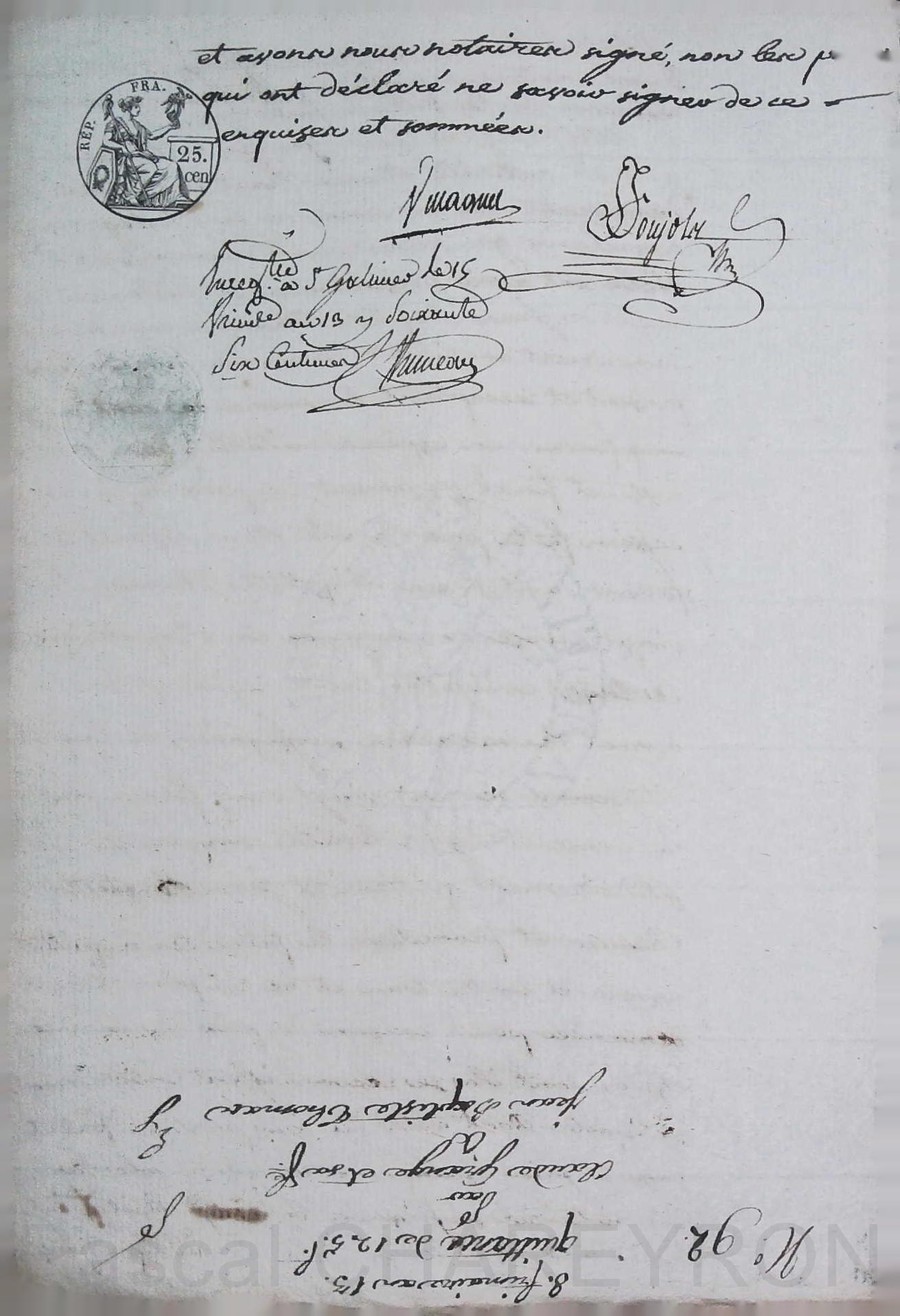 et avons nous notaires signé, non les p
qui ont déclaré ne savoir signer de ce
enquises et sommées.
REP. FRA.
25.
cen
Vmagnes
Poujols
Enregtré a St Galmier le 15
frimaire an 13 Soixante
Six Centimes
8. frimaire an 13.
N.° 92. quittance de 125.f.
par
Claude Grange et sa fe
a
Jean Baptiste Thomas
Pascal CHAREYRON